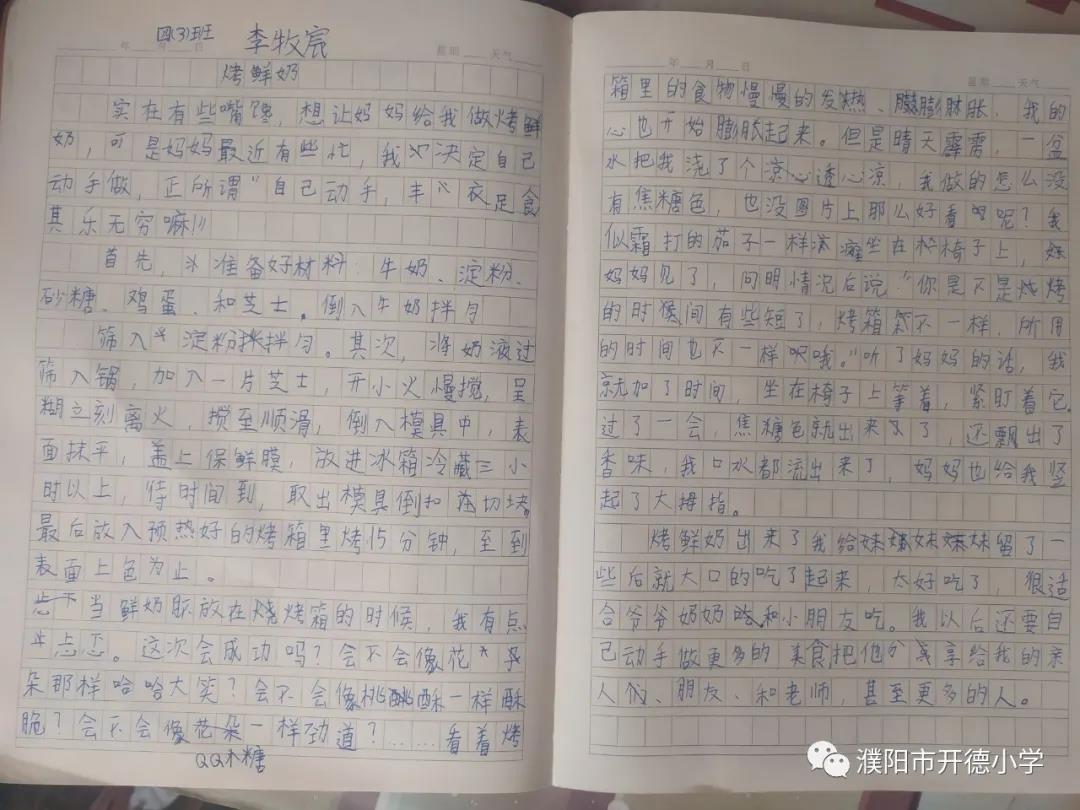 四(3)班 李牧宸
年 月 日 星期 天气
烤鲜奶
实在有些嘴馋，想让妈妈给我做烤鲜
奶，可是妈妈最近有些忙，我决定自己
动手做，正所谓"自己动手，丰衣足食
其乐无穷嘛！！
首先，准备好材料：牛奶、淀粉、
砂糖、鸡蛋、和芝士。倒入牛奶拌匀
筛入淀粉拌匀。其次，将奶液过
筛入锅，加入一片芝士，开小火慢搅，呈
糊立刻离火，搅至顺滑，倒入模具中，表
面抹平，盖上保鲜膜，放进冰箱冷藏三小
时以上，待时间到，取出模具倒扣在切块。
最后放入预热好的烤箱里烤15分钟，至到
表面上色为止。
当鲜奶放在烧烤箱的时候，我有点
忐忑。这次会成功吗？会不会像花
朵那样哈哈大笑？会不会像桃酥一样酥
脆？会不会像一样劲道？……看着烤
QQ木糖
年 月 日 星期 天气
箱里的食物慢慢的发热、膨胀，我的
心也开始膨胀起来。但是晴天霹雳，一盆
水把我浇了个凉心透心凉，我做的怎么没
有焦糖色，也没图片上那么好看呢？我
似霜打的茄子一样瘫坐在椅子上，
妈妈见了，问明情况后说"你是不是烧烤
的时候间有些短了，烤箱不一样，所用
的时间也不一样哦。"听了妈妈的话，我
就加了时间，坐在椅子上等着，紧盯着它。
过了一会，焦糖色就出来了，还飘出了
香味，我口水都流出来了，妈妈也给我竖
起了大拇指。
烤鲜奶出来了我给妹妹留了一
些后就大口的吃了起来，太好吃了，很适
合爷爷奶奶和小朋友吃。我以后还要自
己动手做更多的美食把他分享给我的亲
人们、朋友、和老师，甚至更多的人。
濮阳市开德小学